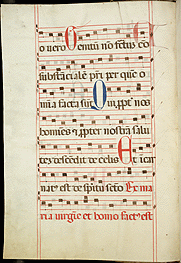 o vero Genitū nō fctus cō
substāciale pr̄i per que o
mīa facta sūt Qui ꝓpt' nos
homines ⁊ ꝓpter nostrā salu
teʒ descēdit de celis Et īcar
nat' est de spiritu scto Ex ma
ria virgīe et homo fact' est